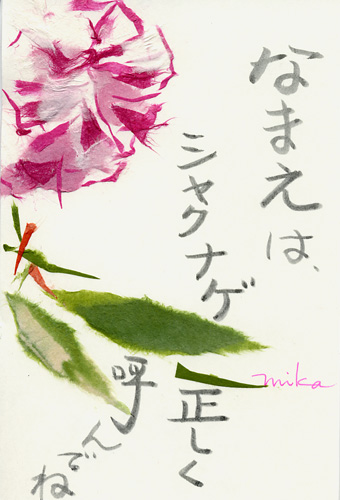 なまえは、
シャクナゲ
正しく
呼んでね
mika